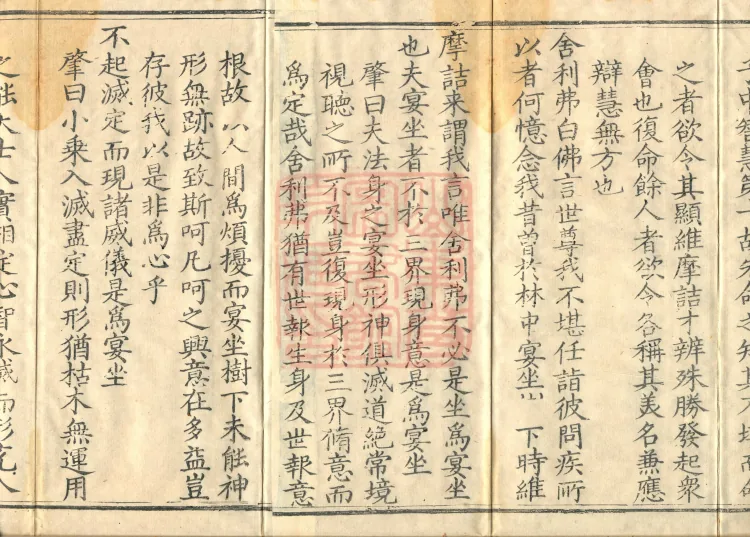 之者欲令其顯維摩詰才辨殊勝發起衆
會也復命餘人者欲令各稱其美名兼應
辯慧無方也
舍利弗白佛言世尊我不堪任詣彼問疾所
以者何憶念我昔曾於林中宴坐 下時維
摩詰来謂我言唯舍利弗不必是坐爲宴坐
也夫宴坐者不於三界現身意是爲宴坐
肇曰夫法身之宴坐形神俱滅道絶常境
視聽之所不及豈復現身於三界脩意而
爲定哉舍利弗猶有世報生身及世報意
根故以人間爲煩擾而宴坐樹下未能神
形無跡故致斯呵凡呵之興意在多益豈
存彼我以是非爲心乎
不起滅定而現諸威儀是爲宴坐
肇曰小乗入滅盡定則形猶枯木無運用
之能大士入實相定心智永滅而形充八